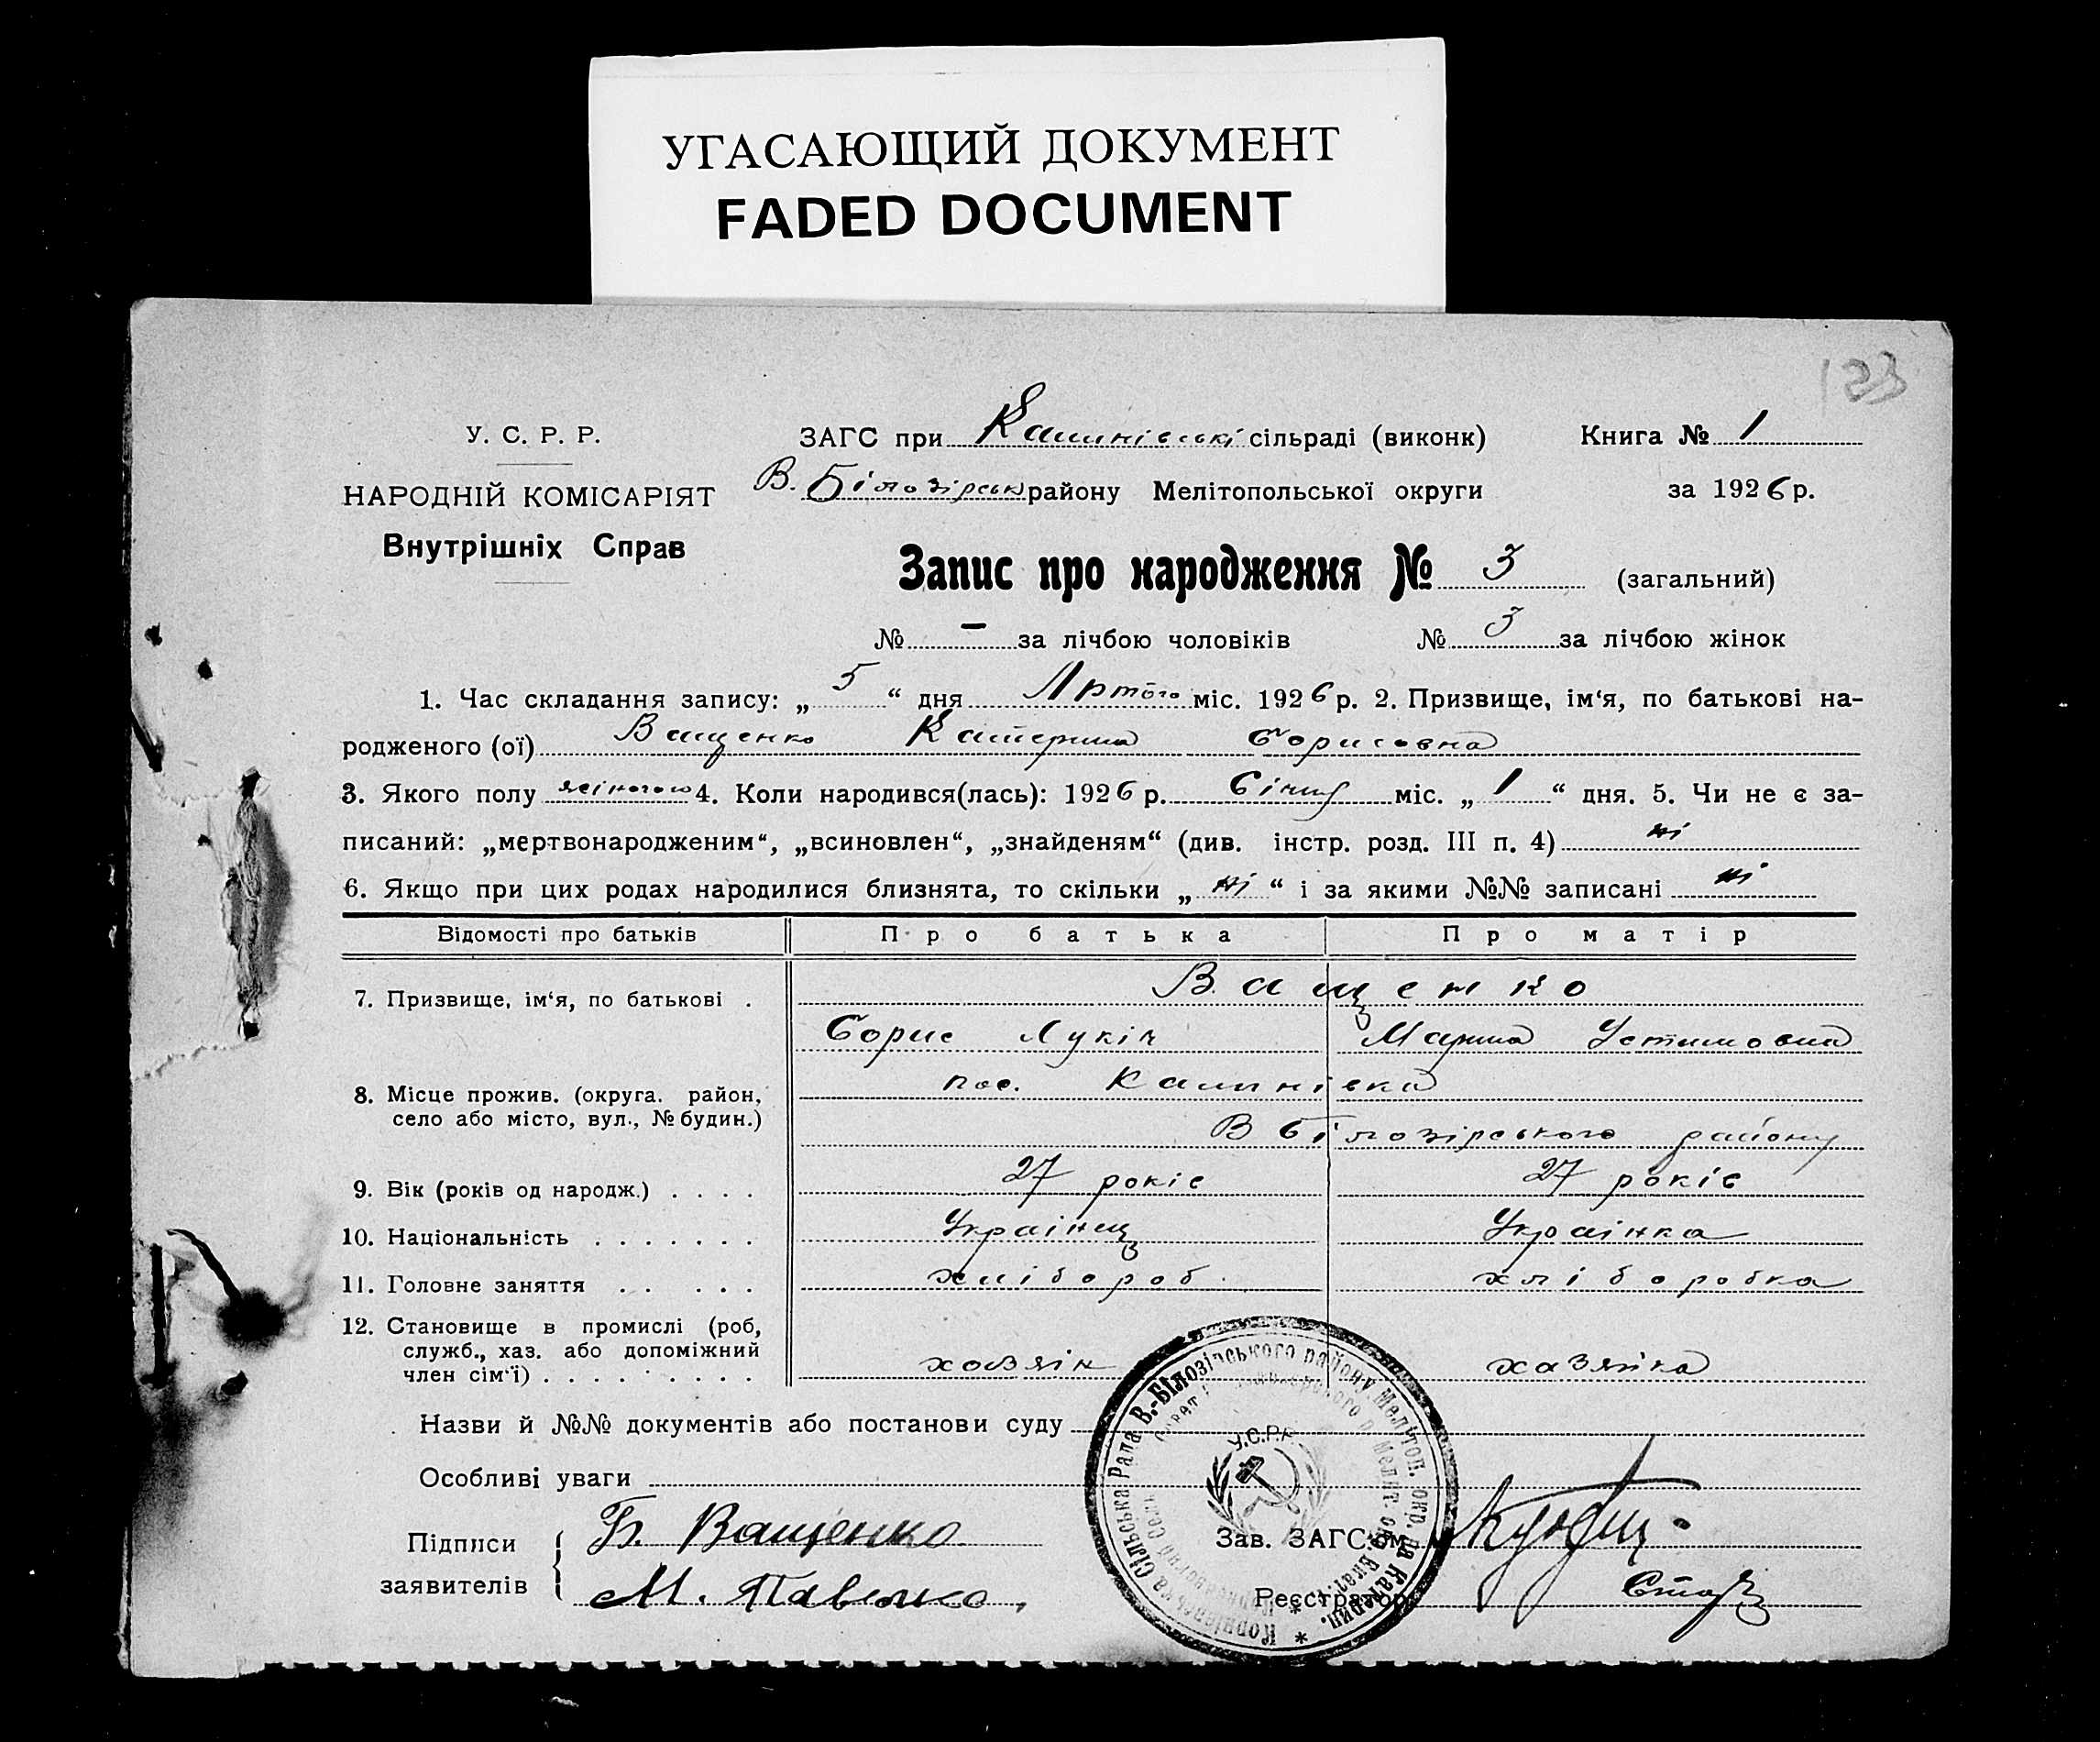 УГАСАЮЩИЙ ДОКУМЕНТ
FADED DOCUMENT
123
У. С. Р. Р.
НАРОДНІЙ КОМІСАРІЯТ
Внутрішніх Справ
ЗАГС при сільраді (виконк)
В. Білозірськ району Мелітопольської округи
Книга № 1
за 1926 р.
Запис про народження № 3 (загальний)
№ – за лічбою чоловіків № 3 за лічбою жінок
1. Час складання запису: „ 5 “ дня Лютого міс. 1926 р. 2. Призвище, ім‘я, по батькові на-
родженого (ої) Ващенко Катерина Борисовна
3. Якого полу жіночого 4. Коли народився(лась): 1926 р. Січня міс. „ 1 “ дня. 5. Чи не є за-
писаний: „мертвонародженим“, „всиновлен“, „знайденям“ (див. інстр. розд. III п. 4) ні
6. Якщо при цих родах народилися близнята, то скільки „ ні “ і за якими №№ записані ні
Відомості про батьків Про батька Про матір
7. Призвище, ім‘я, по батькові . Ващенко
Борис Лукіч Марина Устимовна
8. Місце прожив. (округа. район, пос. Калинівка
село або місто, вул., № будин.) В Білозірського району
9. Вік (років од народж.) . . . . 27 років 27 років
10. Національність . . . . . . . Українец Українка
11. Головне заняття . . . . . хлібороб хліборобка
12. Становище в промислі (роб,
служб., хаз. або допоміжний
член сім‘ї) . . . . . . . . . хозяін хазяйка
Назви й №№ документів або постанови суду
Особливі уваги
Підписи
заявителів
Б. Ващенко
М.
Зав. ЗАГС‘ом
Реєстратор
Сільська Рада В.-Білозірського району Меліт­оп. окр. на Катерин.
У.С.Р.Р.